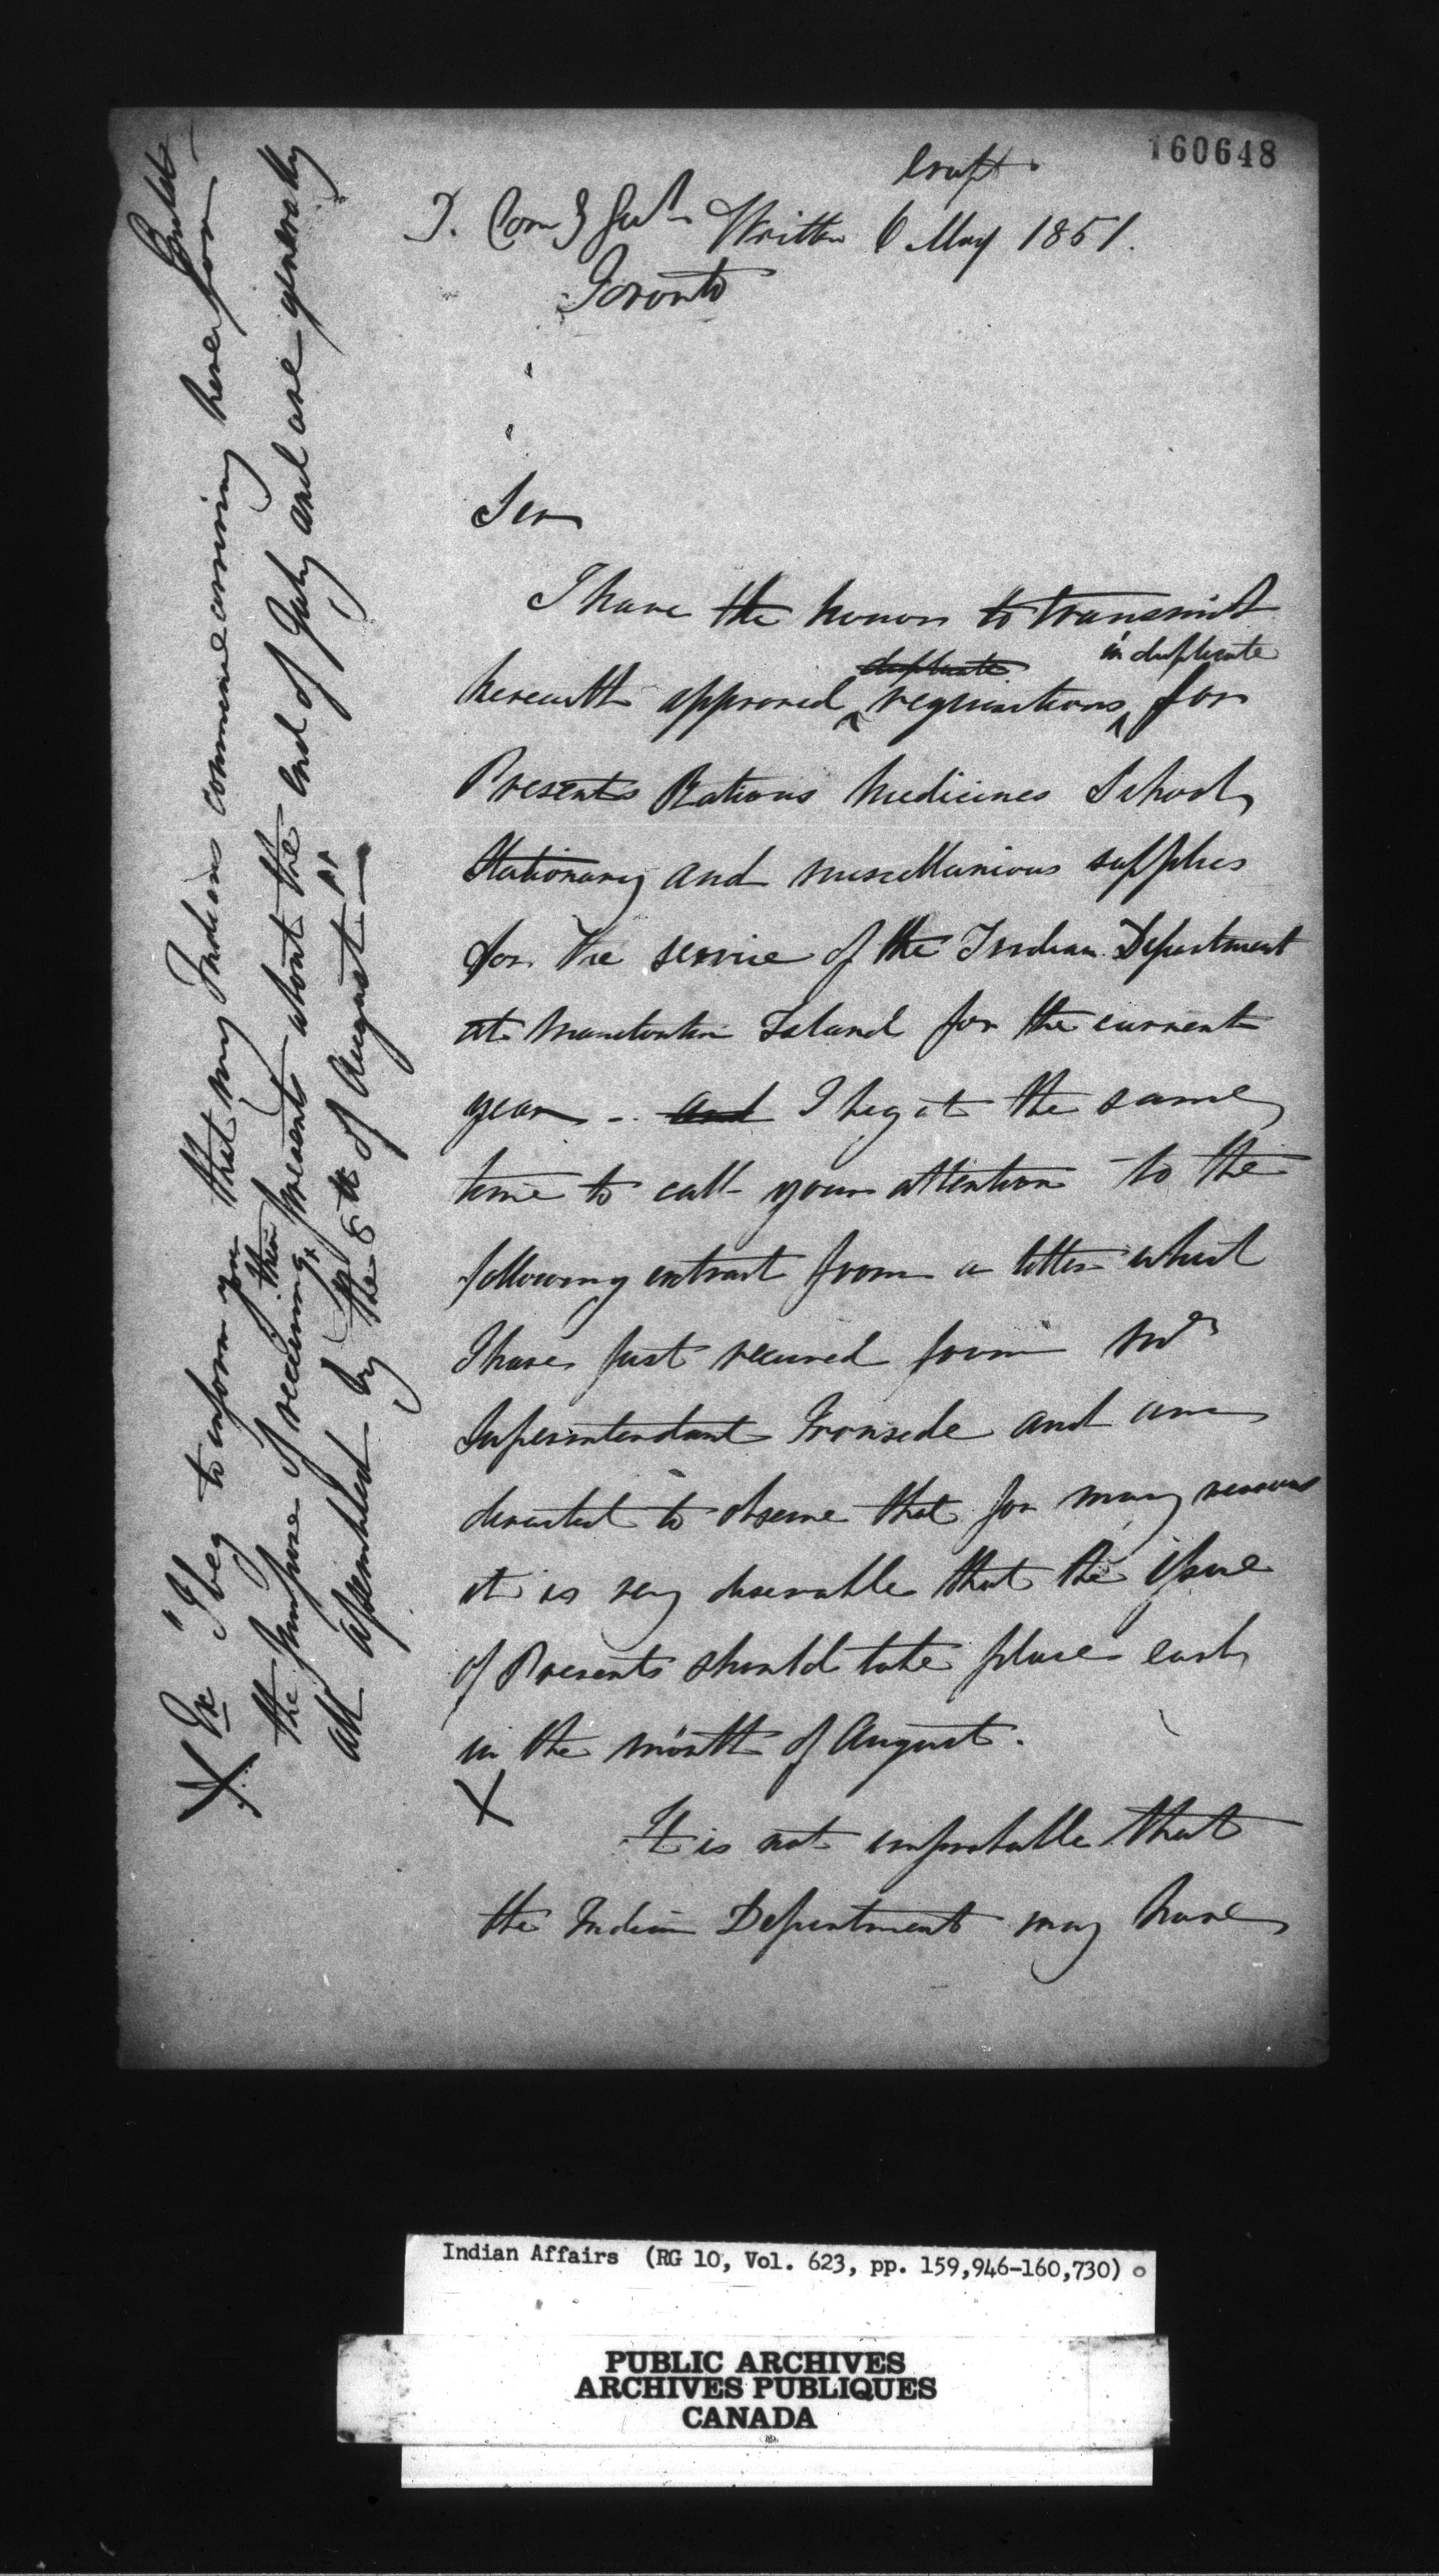 160648
Draft
D. Com Y Genl Written 6 May 1851.
Toronto
Sir
I have the honor to transmit
duplicate in duplicate
herewith approved requisitions for
Presents Rations Medicines School
Stationary and miscellanious supplies
for the service of the Indian Department
at Manitoulin Island for the current
year - and I beg at the same
time to call your attention to the
following extract from a letter which
I have just received from Mr
Superintendant Ironside and am
directed to observe that for many reasons
it is very desirable that the issue
of Presents should take place early
in the month of August.
X
It is not improbable that
the Indian Department may have
X Ex "I beg to inform you that my Indians commence arriving here for
the purpose of receiving their presents about the end of July and are generally
all assembled by the 8th of August"
Indian Affairs (RG 10, Vol. 623, pp. 159,946-160,730)
PUBLIC ARCHIVES
ARCHIVES PUBLIQUES
CANADA